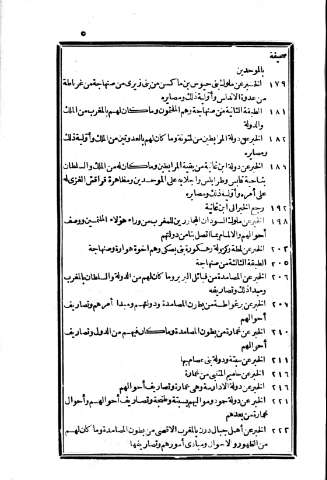 ٥
صحيفة
بالموحدين
١٧٩ الخبر عن ملوك بني حبوس بن ماكسن من بني زيري من صنهاجة من غرناطة
من عدوة الاندلس وأولية ذلك ومصايره
١٨١ الطبقة الثانية من صنهاجة وهم الملثمون وما كان لهم بالمغرب من الملك
والدولة
١٨٢ الخبر عن دولة المرابطين من لمتونة وما كان لهم بالعدوتين من الملك وأولية ذلك
ومصايره
١٨٩ الخبر عن دولة ابن غانية من بقية المرابطين وما كان له من الملك والسلطان
بناحية قابس وطرابلس واجلابه على الموحدين ومظاهرة قراقش الغزي له
على أمره وأولية ذلك ومصايره
١٩٢ رجع الخبر الى ابن غانية
١٩٨ الخبر عن ملوك السودان المجاورين للمغرب من وراء هؤلاء الملثمين ووصف
أحوالهم والالمام بما اتصل بنا من دولتهم
٢٠٣ الخبر عن لمطة وكزولة وهسكورة بني يصكي وهم اخوة هوارة وصنهاجة
٢٠٥ الطبقة الثالثة من صنهاجة
٢٠٦ الخبر عن المصامدة من قبائل البربر وما كان لهم من الدولة والسلطان بالمغرب
ومبدا ذلك وتصاريفه
٢٠٧ الخبر عن برغواطة من بطون المصامدة ودولتهم ومبدا أمرهم وتصاريف
أحوالهم
٢١٠ الخبر عن غمارة من بطون المصامدة وما كان فيهم من الدول وتصاريف
أحوالهم
٢١١ الخبر عن سبتة ودولة بني عصام بها
٢١٦ الخبر عن حاميم المتنبي من غمارة
٢١٦ الخبر عن دولة الادارسة وهي غمارة وتصاريف أحوالهم
٢٢١ الخبر عن دولة حمود ومواليهم بسبتة وطنجة وتصاريف أحوالهم وأحوال
غمارة من بعدهم
٢٢٣ الخبر عن أهل جبال درن بالمغرب الاقصى من بطون المصامدة وما كان لهم
من الظهور والاحوال ومبادي أمورهم وتصاريفها